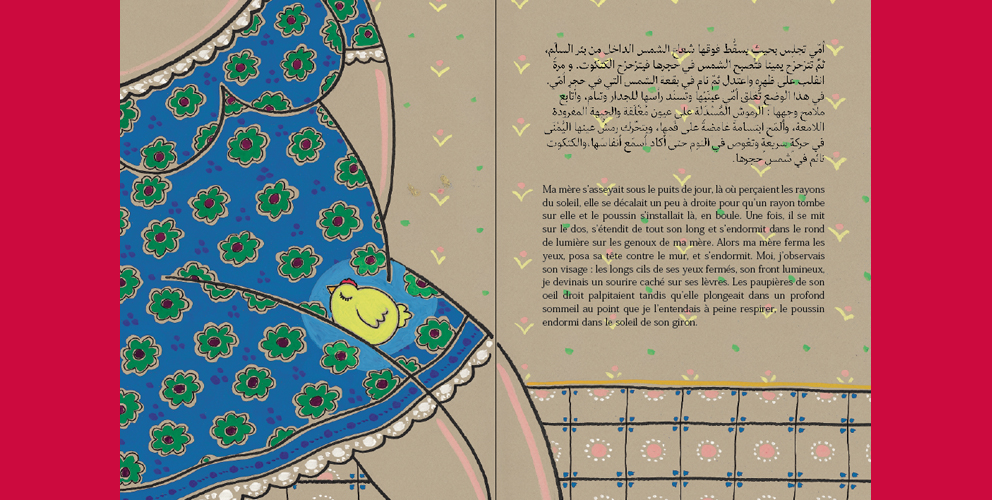 أمّي تجلس بحيث يسقُط فوقها شعاع الشمس الداخل من بئر السلّم،
ثمّ تتزحزح يمينا فتصبح الشمس في حجرها فيتزحزح الكتكوت. و مرة
انقلب على ظهره واعتدل ثمّ نام في بقعة الشمس التي في حجر أمّي.
في هذا الوضع تُغلق أمّي عينَيْها وتسند رأسها للجدار وتنام، وأتابع
ملامح وجهها : الرموش المُسْدَلة على عيون مُغْلَقة والجبهة المفرودة
اللامعة، وألمَح ابتسامة غامضةً على فمها، ويتحّرك رمش عينها اليُمْنى
في حركةٍ سريعةٍ وتغوص في النوم حتى أكاد أسمَع أنفاسها،والكتكوت
نائم في شمس حجرها.
Ma mère s'asseyait sous le puits de jour, là où perçaient les rayons
du soleil, elle se décalait un peu à droite pour qu'un rayon tombe
sur elle et le poussin s'installait là, en boule. Une fois, il se mit
sur le dos, s'étendit de tout son long et s'endormit dans le rond
de lumière sur les genoux de ma mère. Alors ma mère ferma les
yeux, posa sa tête contre le mur, et s'endormit. Moi, j'observais
son visage : les longs cils de ses yeux fermés, son front lumineux,
je devinais un sourire caché sur ses lèvres. Les paupières de son
oeil droit palpitaient tandis qu'elle plongeait dans un profond
sommeil au point que je l'entendais à peine respirer, le poussin
endormi dans le soleil de son giron.